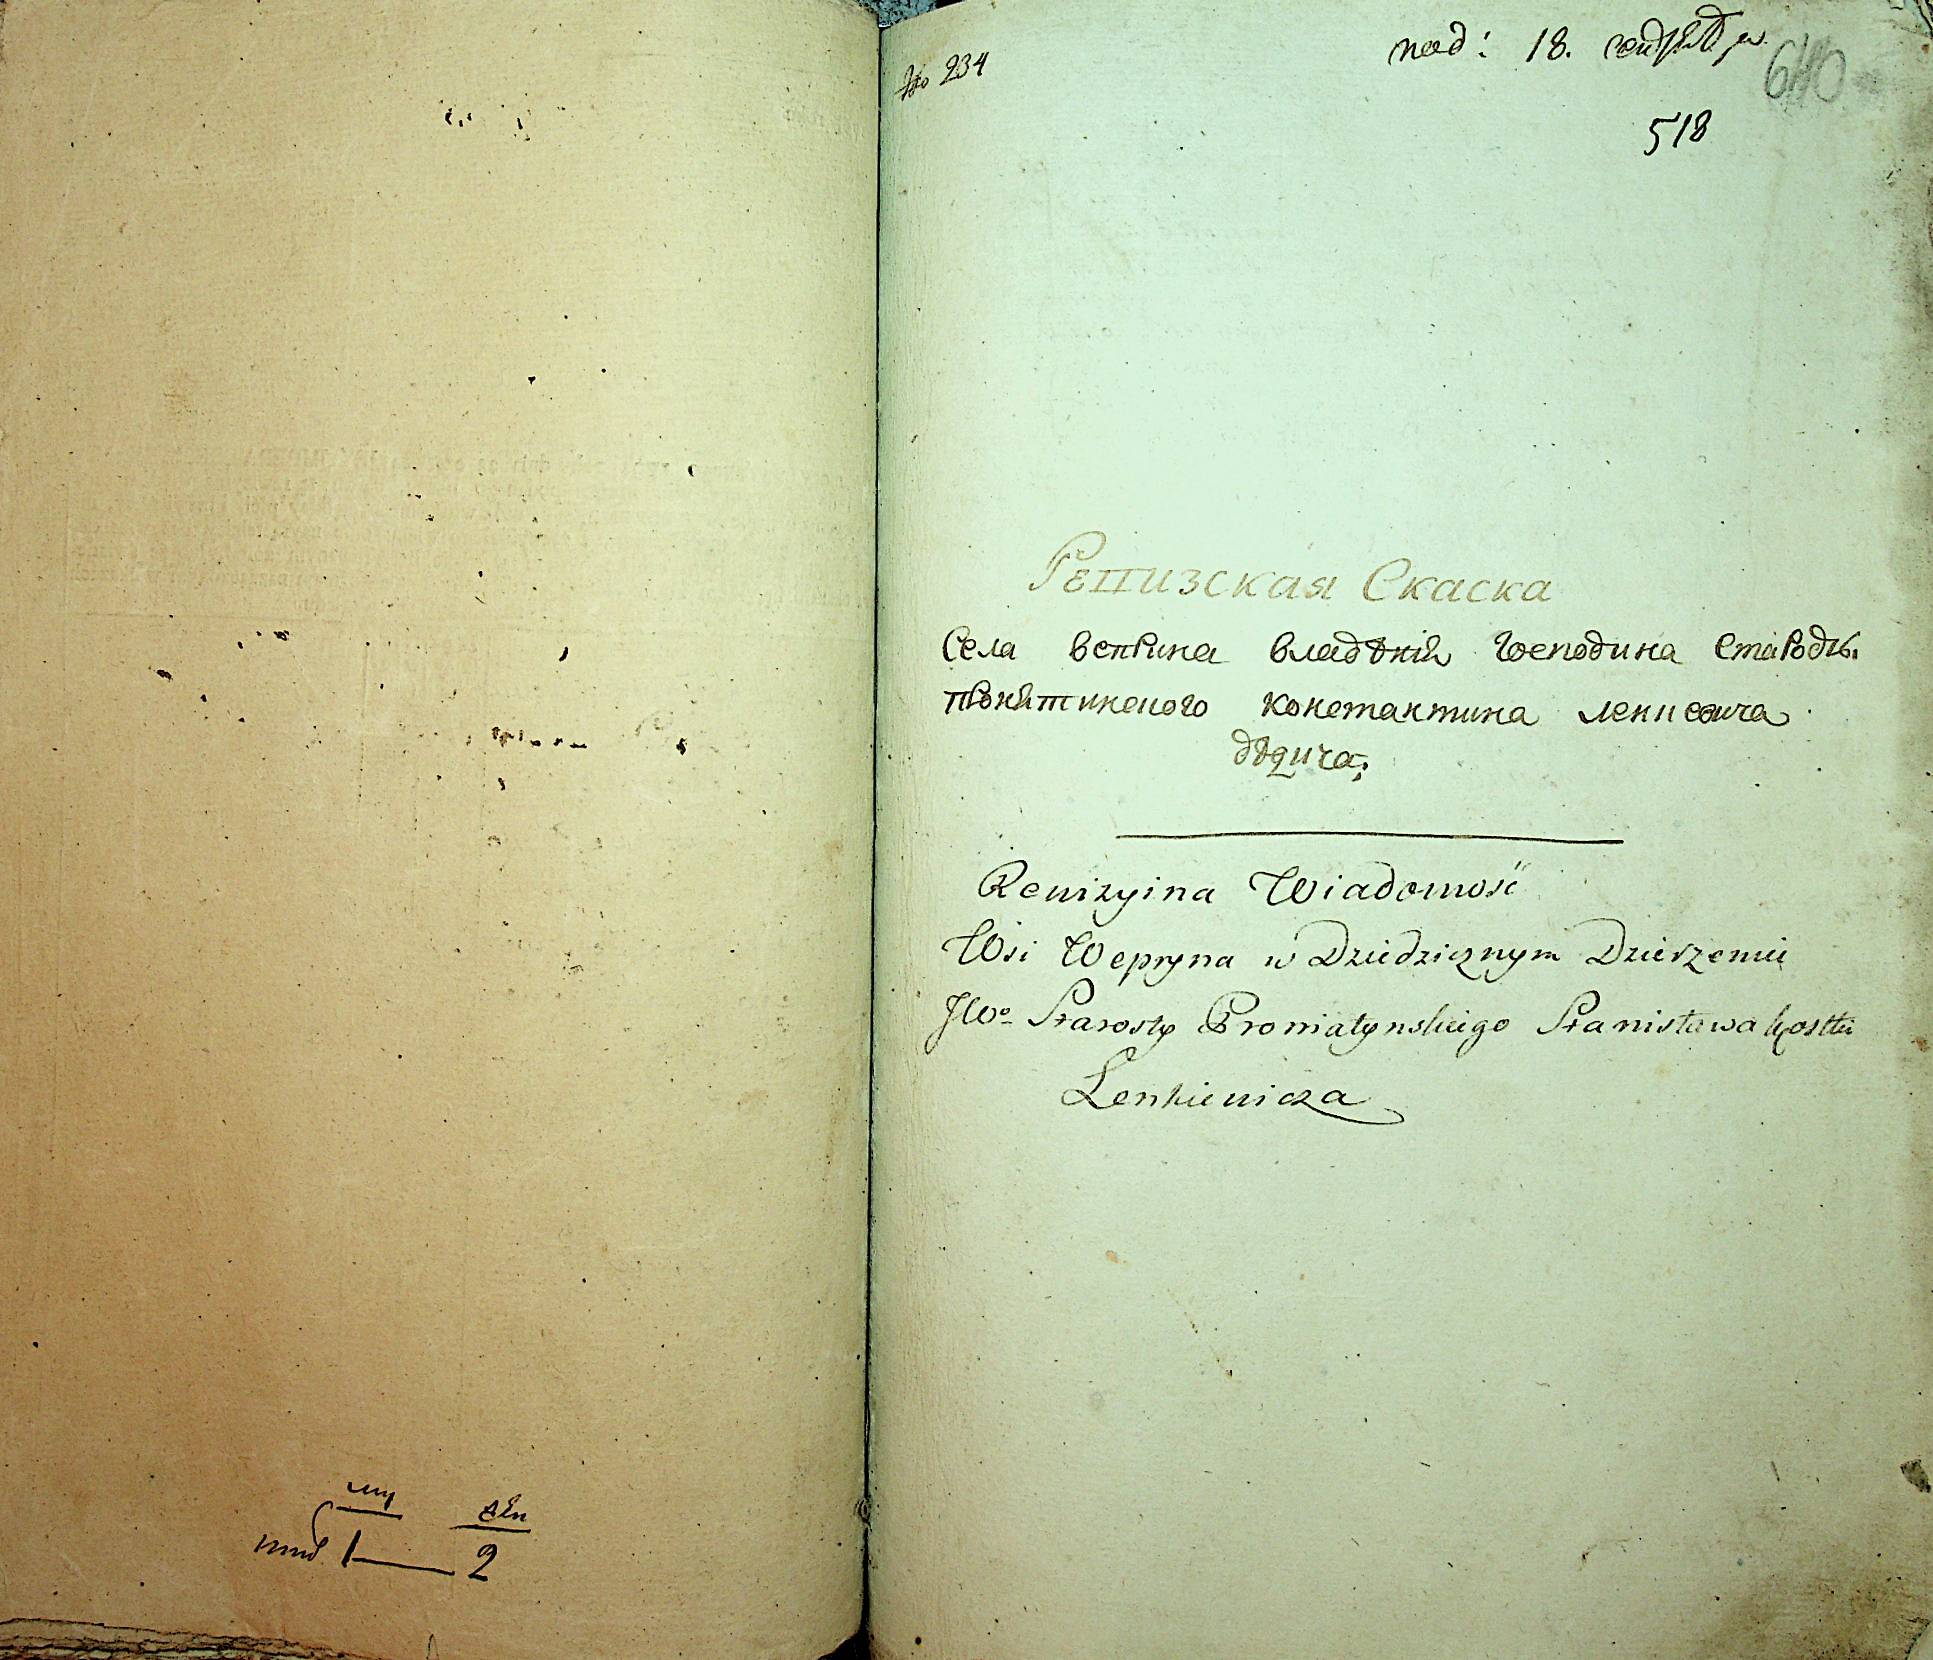 № 234
под: 18. сентября
640
518
Ревизская Скаска
Села веприна владѣнія Господина Старосты
Константина
дѣдича;
Rewizyina Wiadomość
Wsi Wepryna w Dziedzicznym Dzierzeniu
JWo Starosty Broniatynskiego Stanisława Kostki
Lenkiewicza
1 — 2